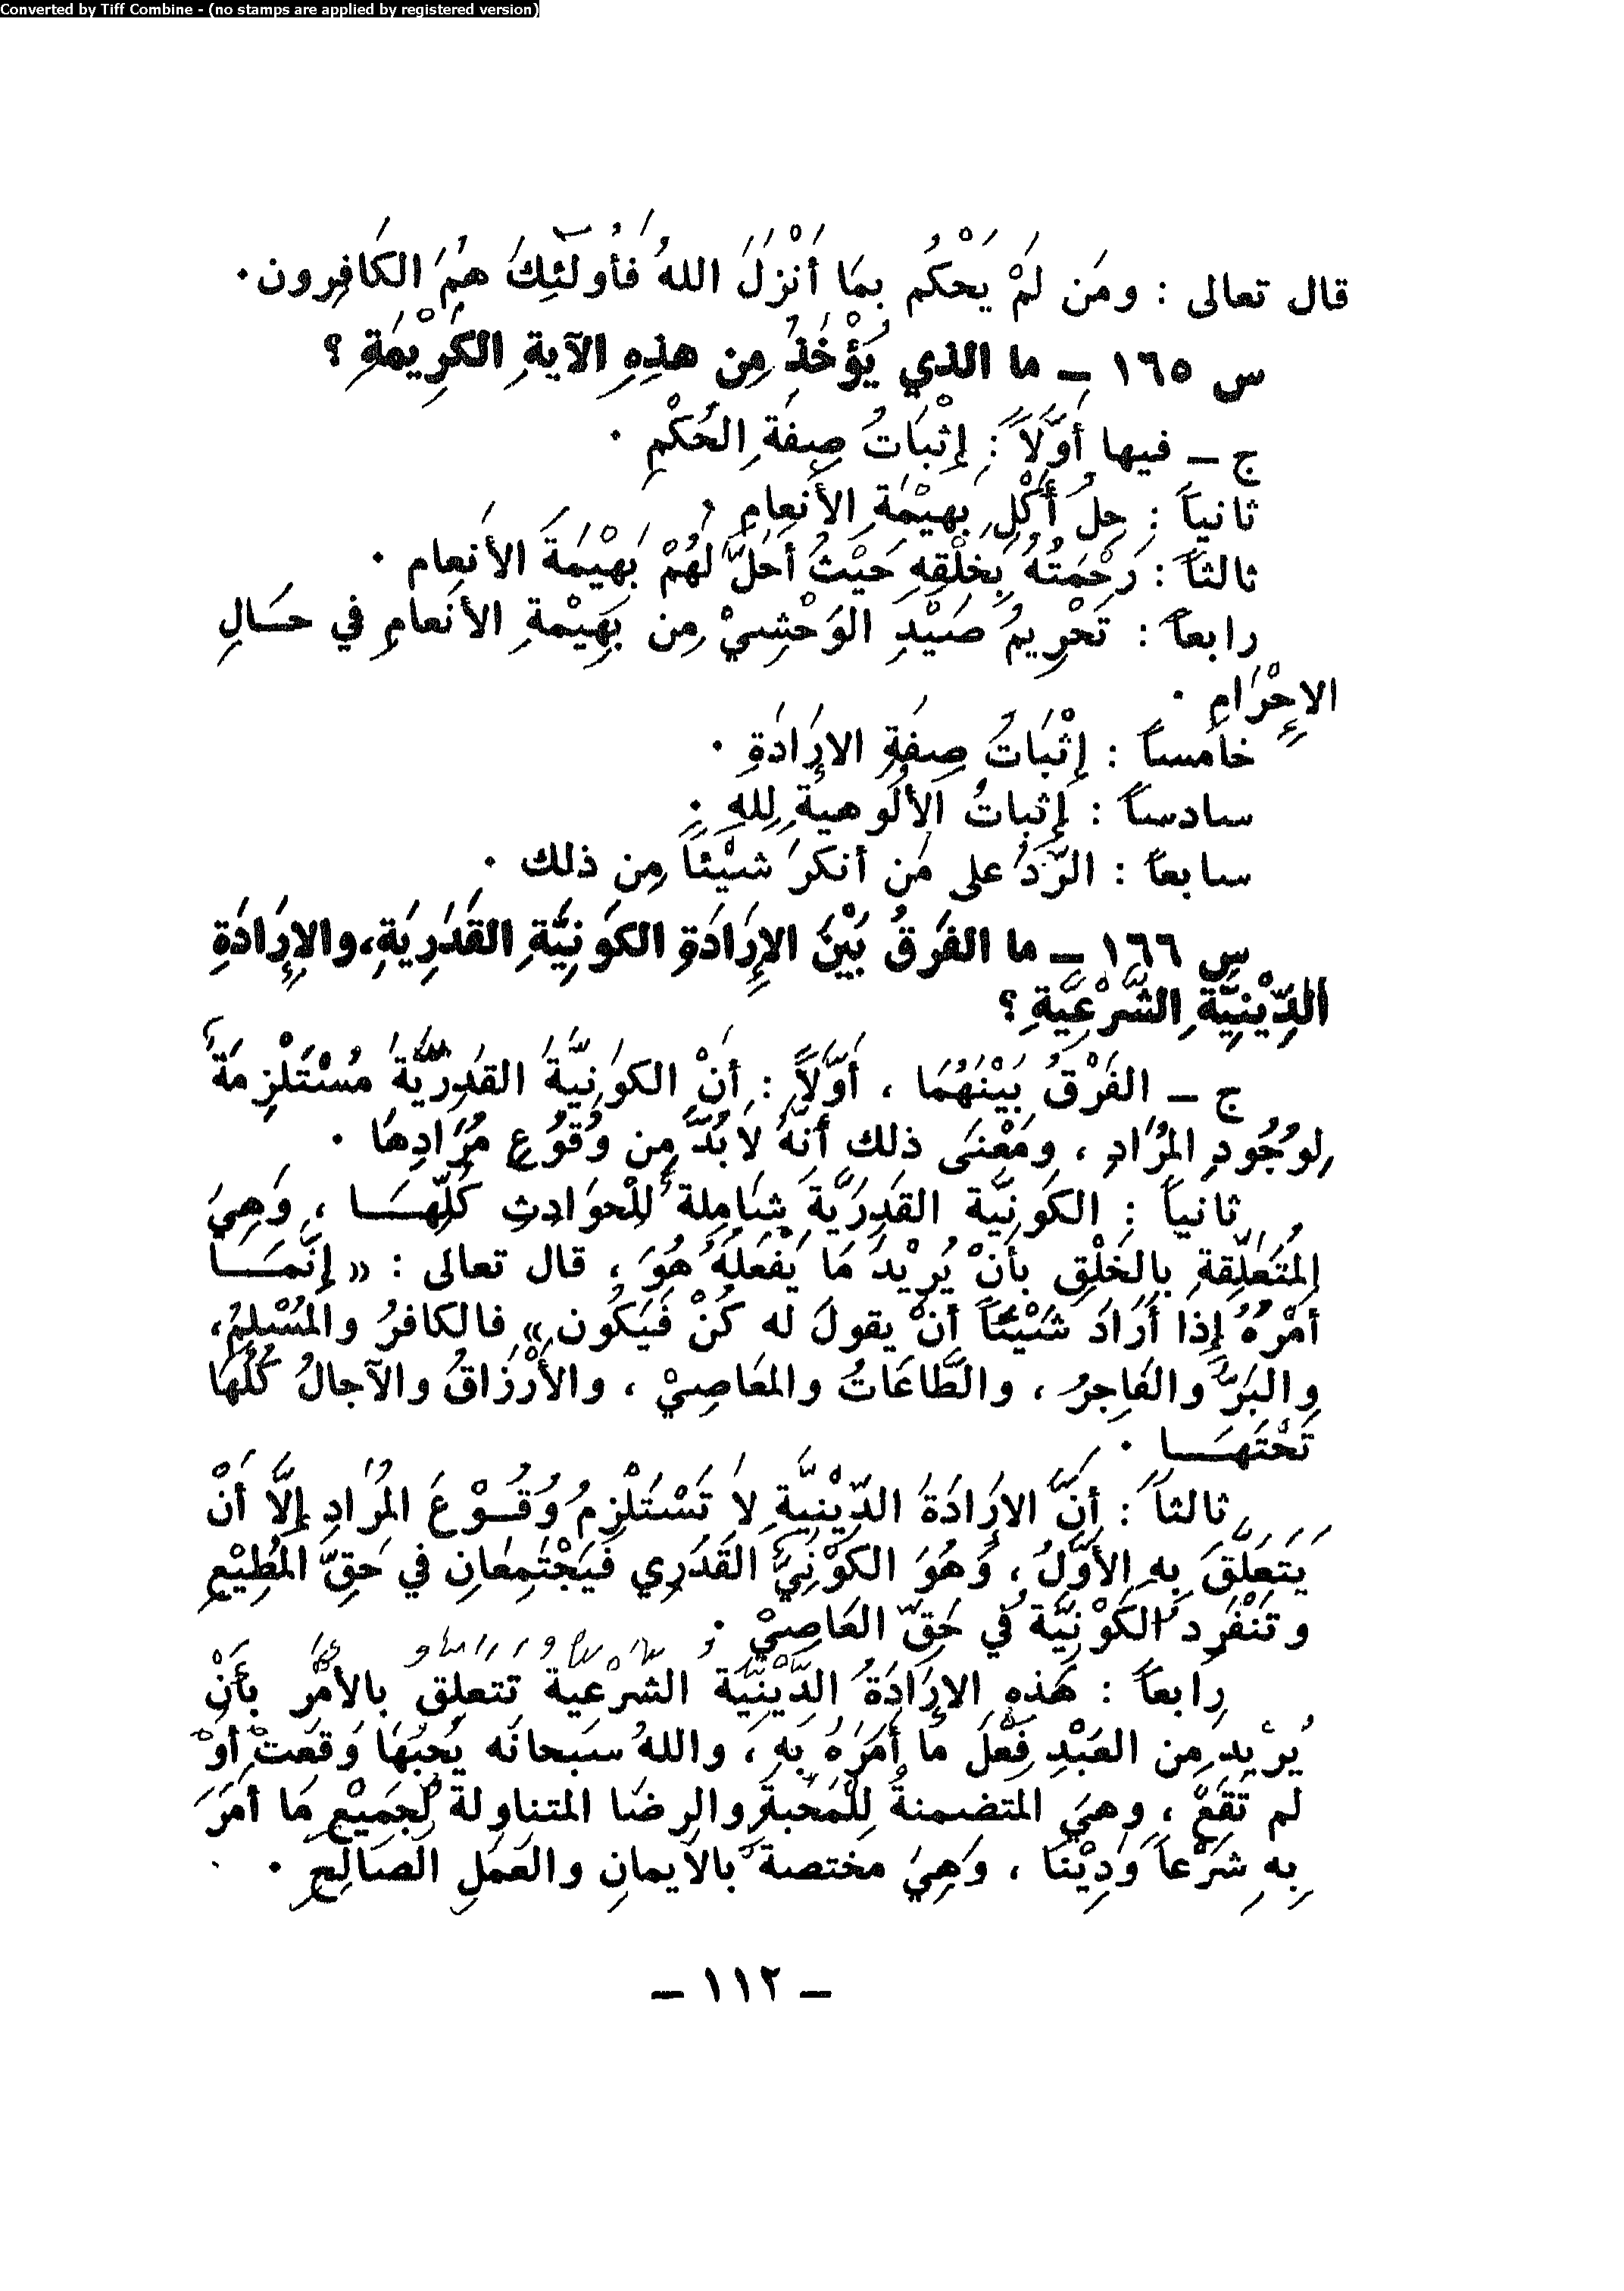 Converted by Tiff Combine - (no stamps are applied by registered version)
قال تعالى : ومَن لَمْ يَحْكُم بِمَا أَنْزَلَ اللهُ فَأُولَئِكَ هُمُ الكَافِرون .
س ١٦٥ ــ ما الذي يُؤْخَذُ مِن هذِهِ الآيةِ الكَرِيْمَةِ ؟
ج ــ فيها أَوَّلاً : إِثْبَاتُ صِفَةِ الحُكْمِ .
ثانياً : حِلُ أَكْلِ بَهِيْمَةِ الأَنعامِ .
ثالثاً : رَحْمَتُهُ بِخَلْقِهِ حَيْثُ أَحَلَّ لَهُمْ بَهْيْمَةَ الأَنعام .
رابعاً : تَحْرِيمُ صَيْدِ الوَحْشِيْ مِن بَهِيْمةِ الأَنعامِ في حَــالِ
الاِحْرَامِ .
خامساً : إِثْبَاتُ صِفَةِ الاِرَادَةِ .
سادساً : إِثباتُ الأُلُوهيةِ لِلهِ .
سابعاً : الرَّدُ على مَن أنكرَ شَيْئاً مِن ذلك .
س ١٦٦ ــ ما الفَرَقُ بَيْنَ الإِرَادَةِ الكَونِيَّةِ القَدَرِيَةِ، والاِرَادَةِ
الدِّيْنِيَّةِ الشَّرْعِيَّةِ ؟
ج ــ الفَرْقُ بَيْنَهُمَا ، أَوَّلاً : أَنْ الكَونِيَّةَ القَدِرِيَّةَ مُسْتَلْزِمَةٌ
لِوُجُودِ المُرَادِ ، ومَعْنَى ذلك أَنَّهُ لاَبُدَّ مِن وُقُوعِ مُرَادِهَا .
ثانياً : الكَونِيَّة القَدِرَيَّة شَامِلة لِلْحوَادِثِ كُلِّهَــا ، وَهِيَ
المُتَعَلِّقةِ بِالخَلْقِ بأَنْ يُرِيْدَ مَا يَفْعَلُهُ هُوَ ، قال تعالى : « إِنَّمَــا
أَمْرُهُ إِذَا أَرَادَ شَيْئاً أَنْ يقولَ له كُنْ فَيَكُون » فالكافرُ والمُسْلِمُ،
والبَرُّ والفَاجِرُ ، والطَّاعَاتُ والمعَاصِيْ ، والأَرْزَاقُ والآجالُ كُلُّهَا
تَحْتَهَــا .
ثالثاً : أَنَّ الاِرَادَةَ الدِّيْنِيَّةِ لاَ تَسْتَلْزِمُ وُقُــوْعَ المُرَادِ إِلَّا أَنْ
يَتَعَلَّقَ بِهِ الأَوَّلُ ، وَهُوَ الكَوْنِيَّ القَدَرِي فَيَجْتَمِعَانِ في حَقِّ المُطِيْعِ
وتَنْفَرِد الكَوْنِيَّة في حَقِّ العَاصِيْ .
رَابعاً : هَذِهِ الإِرَادَةُ الدِّيْنِيَّة الشَرْعِيةُ تَتعلق بالأَمْر بأَنْ
يُرِيْد مِن العَبْدِ فِعْلَ مَا أَمَرَهُ بِهِ ، واللهُ سبحانه يُحِبُهَا وَقَعَتْ أَوْ
لم تَقَعْ ، وهيَ المتضمنةُ لِلْمَحَبةِ والرِضَا المتناولة لِجَمِيْعِ مَا أَمَرَ
بِهِ شَرْعاً وَدِيْنَا ، وَهِيَ مختصة بالاَيمانِ والعَمَلِ الصَالِحِ .
ــ ١١٢ ــ